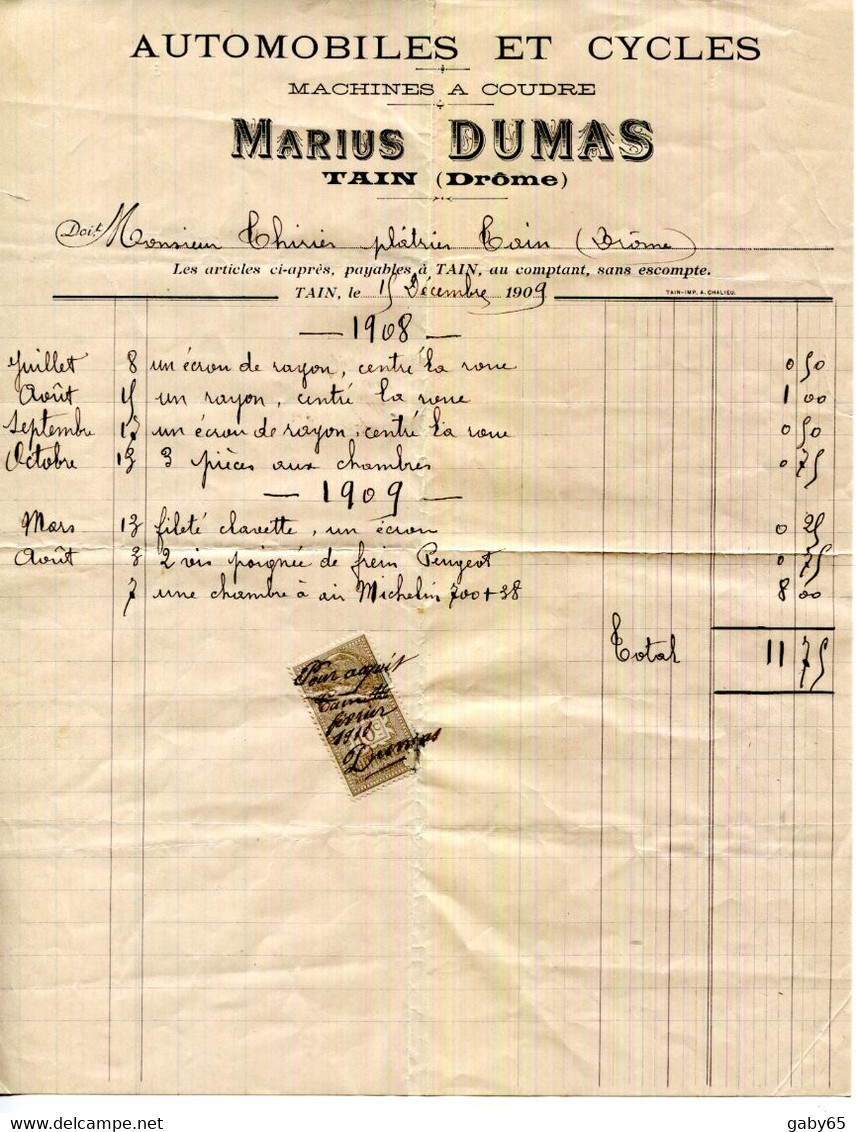 AUTOMOBILES ET CYCLES
MACHINES A COUDRE
MARIUS DUMAS
TAIN (Drôme)
Doit Monsieur Thiriés plâtrier Tain (Drôme)
Les articles ci-après, payables à TAIN, au comptant, sans escompte.
TAIN, le 15 Décembre 1909
TAIN-IMP. A. CHALIEU.
— 1908 —
Juillet 8 un écrou de rayon, centré la roue 0 50
Août 15 un rayon, centré la roue 1 00
Septembre 17 un écrou de rayon, centré la roue 0 50
Octobre 13 3 pièces aux chambres 0 75
— 1909 —
Mars 13 fileté clavette, un écrou 0 25
Août 3 2 vis poignée de frein Peugeot 0 75
7 une chambre à air Michelin 700+38 8 00
Total 11 75
Pour acquit
Tain
février
1910
Dumas
gaby65